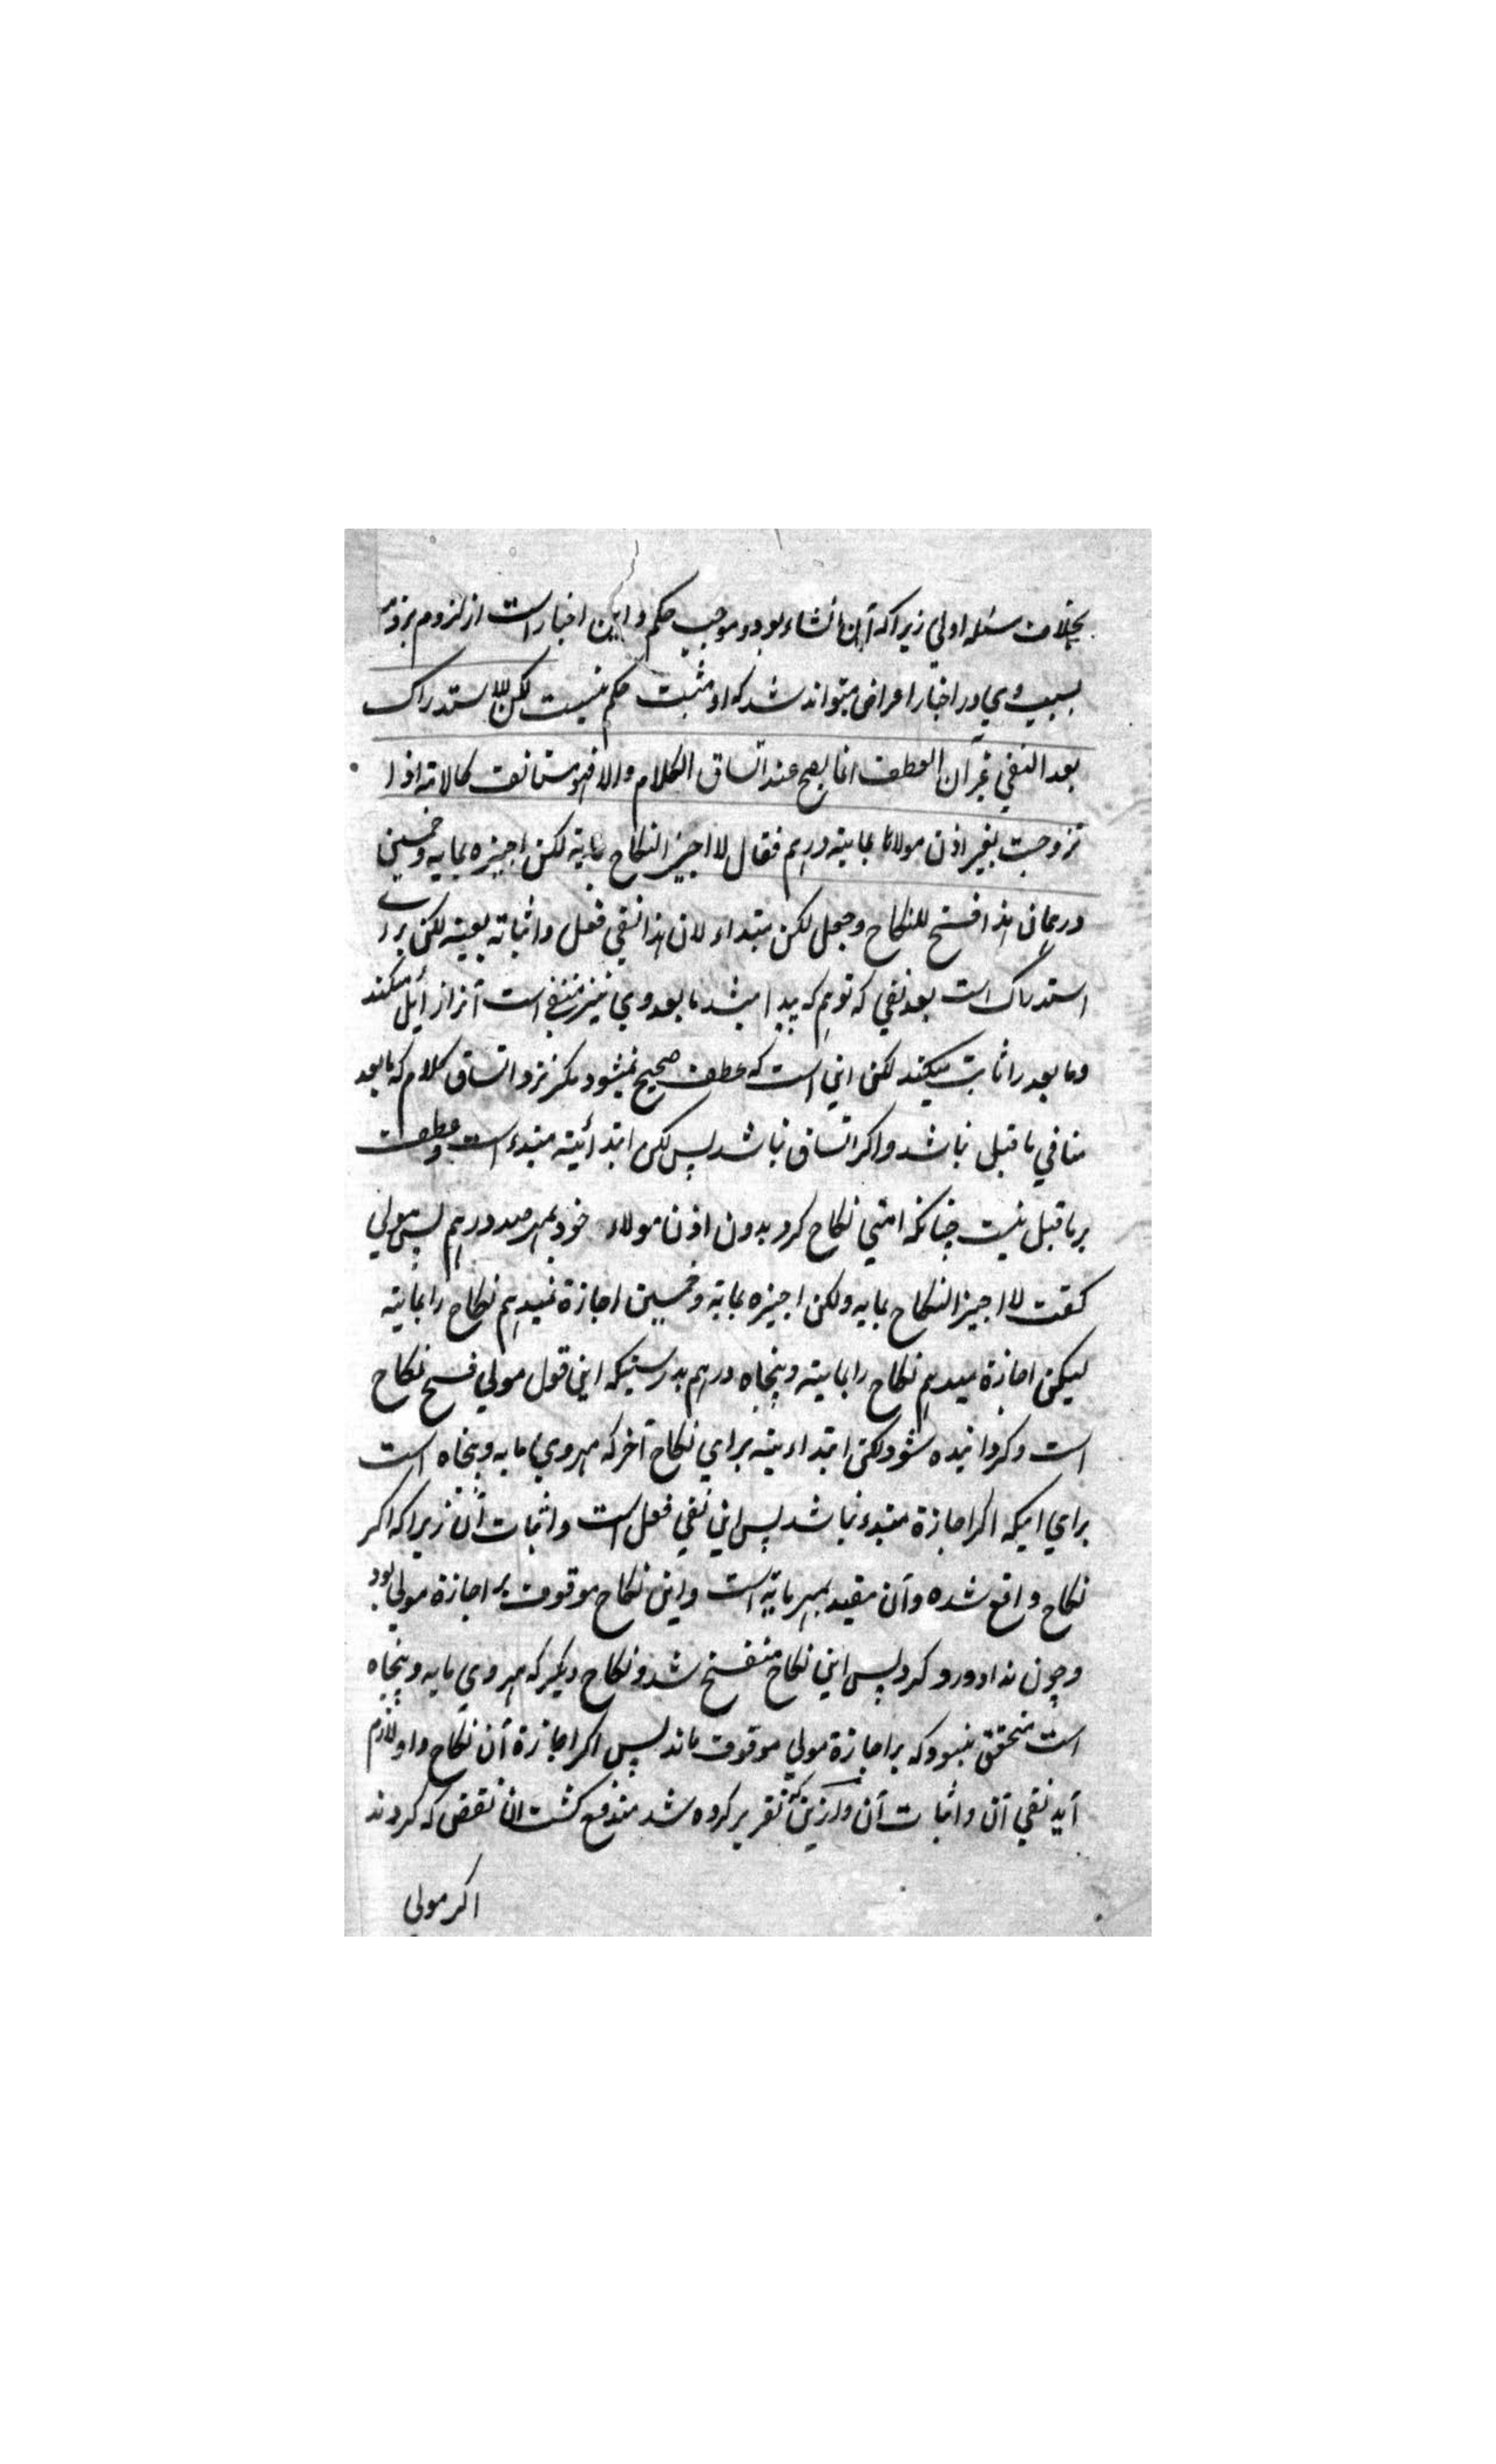 بخلاف مسئله اولي زيراكه آن انشاء بود و موجب حكم و اين اخبار است از لزوم بزوم
بسبب وي و در اخبار اعراض ميتواند شد كه او مثبت حكم نيست لكن للاستدراك
بعد النفي غير ان العطف انما يصح عند اتساق الكلام والا فهو مستانف كالامة اذا
تزوجت بغير اذن مولاها بماية درهم فقال لا اجيز النكاح بماية لكن اجيزه بماية وخمسين
درهما ان هذا فسخ للنكاح وجعل لكن مبتداء لان هذا نفي فعل واثباته بعينه لكن براي
استدراك است بعد نفي كه توهم كه پيدا ميشد ما بعد وي نيز منفي است آنرا زايل ميكند
وما بعد را ثابت ميكند لكن اين است كه عطف صحيح نميشود مكر نزد اتساق كلام كه ما بعد
منافي ما قبل نباشد واكر اتساق نباشد پس لكن ابتدائيه مبتدء است وعطف
بر ما قبل نيست چنانكه امتي نكاح كرد بدون اذن مولاء خود بمهر صد درهم پس مولي
كفت لا اجيز النكاح بمايه ولكن اجيزه بماية وخمسين اجازة نميدهم نكاح را بماية
ليكن اجازة ميدهم نكاح را بماية وپنجاه درهم بدرستيكه اين قول مولي فسخ نكاح
است وكردانيده شود لكن ابتداءيه براي نكاح آخر كه مهر وي مايه وپنجاه است
براي اينكه اكر اجازة مبتدء نباشد پس اين نفي فعل است واثبات آن زيراكه اكر
نكاح واقع شده وآن مقيد بمهر ماية است واين نكاح موقوف بر اجازة مولي بود
وچون نداد ورد كرد پس اين نكاح منفسخ شد ونكاح ديكر كه مهر وي مايه وپنجاه
است متحقق نبود كه بر اجازة مولي موقوف ماند پس اكر اجازة آن نكاح داد لازم
آيد نفي آن واثبات آن وازين كه تقرير كرده شد مندفع كشت آن نقض كه كردند
اكر مولي